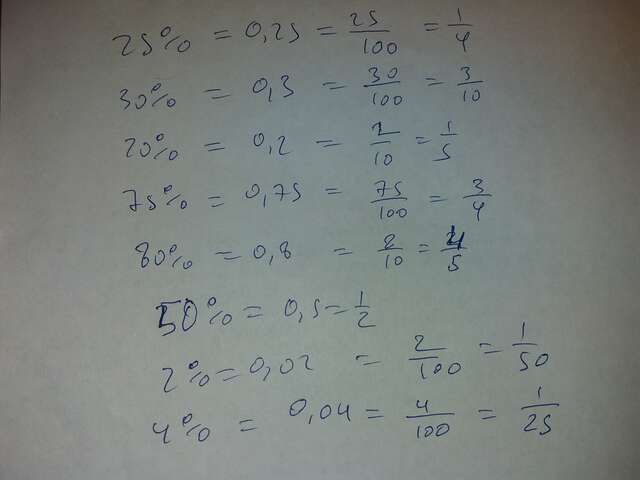 25% = 0,25 = 25/100 = 1/4
30% = 0,3 = 30/100 = 3/10
20% = 0,2 = 2/10 = 1/5
75% = 0,75 = 75/100 = 3/4
80% = 0,8 = 8/10 = 4/5
50% = 0,5 = 1/2
2% = 0,02 = 2/100 = 1/50
4% = 0,04 = 4/100 = 1/25